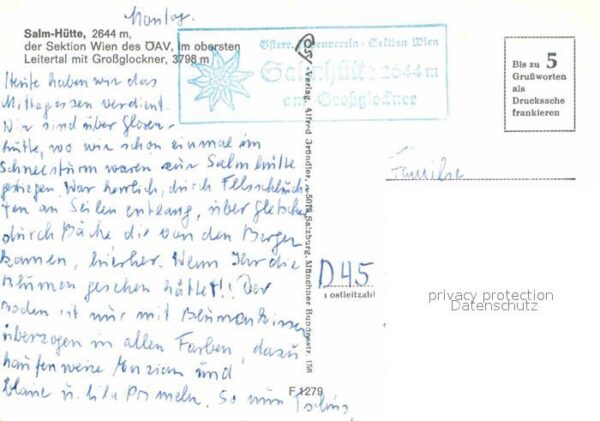 Montag.
Salm-Hütte, 2644 m,
der Sektion Wien des ÖAV, im obersten
Leitertal mit Großglockner, 3798 m
Heute haben wir das
Mittagessen verdient.
Wir sind über Glorer-
hütte, wo wir schon einmal im
Schneesturm waren zur Salmhütte
gestiegen. War herrlich, durch Felsschluch-
ten an Seilen entlang, über Gletscher
durch Bäche die von den Bergen
kamen, hierher. Wenn Ihr die
Blumen gesehen hättet!! Der
Boden ist nur mit Blumenkissen
überzogen in allen Farben, dazu
haufenweise Enzian und
blaue u. lila Primeln. So nun
Österr. Alpenverein - Sektion Wien
Salmhütte 2644 m
am Großglockner
Verlag Alfred Gründler, Salzburg, Münchner Bundesstr. 156
Bis zu 5
Grußworten
als
Drucksache
frankieren
Familie
D 45
Postleitzahl
privacy protection
Datenschutz
F 1279